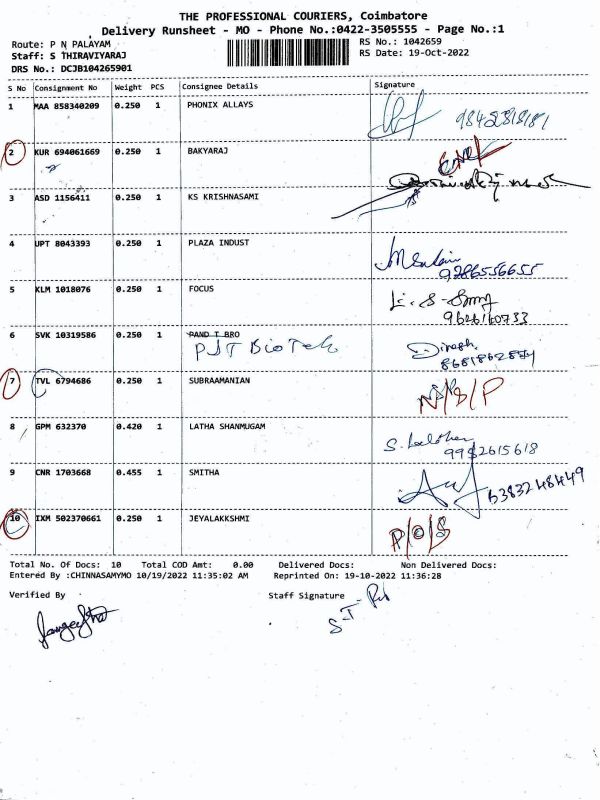 THE PROFESSIONAL COURIERS, Coimbatore
Delivery Runsheet - MO - Phone No.:0422-3505555 - Page No.:1
Route: P N PALAYAM RS No.: 1042659
Staff: S THIRAVIYARAJ RS Date: 19-Oct-2022
DRS No.: DCJB104265901
S No Consignment No Weight PCS Consignee Details Signature
1 MAA 858340209 0.250 1 PHONIX ALLAYS
2 KUR 694061669 0.250 1 BAKYARAJ
3 ASD 1156411 0.250 1 KS KRISHNASAMI
4 UPT 8043393 0.250 1 PLAZA INDUST
9286556655
5 KLM 1018076 0.250 1 FOCUS
9626160733
6 SVK 10319586 0.250 1 PAND T BRO
PJT BioTech Dinesh
7 TVL 6794686 0.250 1 SUBRAAMANIAN N/S/P
8 GPM 632370 0.420 1 LATHA SHANMUGAM
9952615618
9 CNR 1703668 0.455 1 SMITHA 6383248449
10 IXM 502370661 0.250 1 JEYALAKKSHMI P/O/S
Total No. Of Docs: 10 Total COD Amt: 0.00 Delivered Docs: Non Delivered Docs:
Entered By :CHINNASAMYMO 10/19/2022 11:35:02 AM Reprinted On: 19-10-2022 11:36:28
Verified By Staff Signature